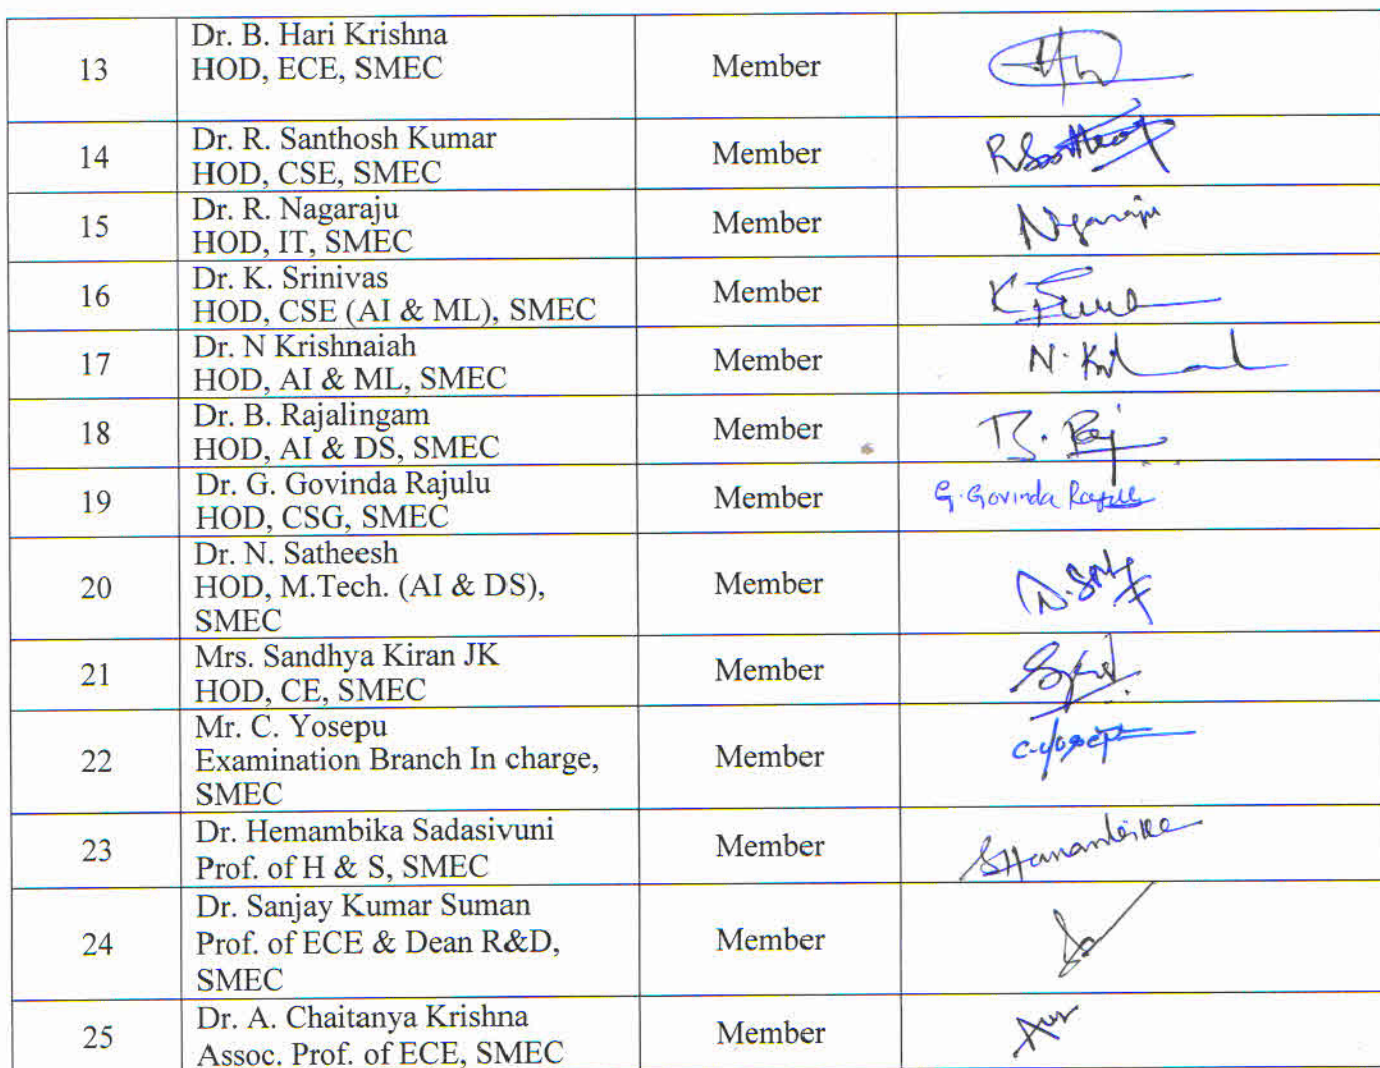 13
Dr. B. Hari Krishna
HOD, ECE, SMEC
Member
14
Dr. R. Santhosh Kumar
HOD, CSE, SMEC
Member
15
Dr. R. Nagaraju
HOD, IT, SMEC
Member
Nagaraju
16
Dr. K. Srinivas
HOD, CSE (AI & ML), SMEC
Member
17
Dr. N Krishnaiah
HOD, AI & ML, SMEC
Member
18
Dr. B. Rajalingam
HOD, AI & DS, SMEC
Member
19
Dr. G. Govinda Rajulu
HOD, CSG, SMEC
Member
G. Govinda Rajulu
20
Dr. N. Satheesh
HOD, M.Tech. (AI & DS),
SMEC
Member
21
Mrs. Sandhya Kiran JK
HOD, CE, SMEC
Member
22
Mr. C. Yosepu
Examination Branch In charge,
SMEC
Member
C. Yosepu
23
Dr. Hemambika Sadasivuni
Prof. of H & S, SMEC
Member
24
Dr. Sanjay Kumar Suman
Prof. of ECE & Dean R&D,
SMEC
Member
25
Dr. A. Chaitanya Krishna
Assoc. Prof. of ECE, SMEC
Member